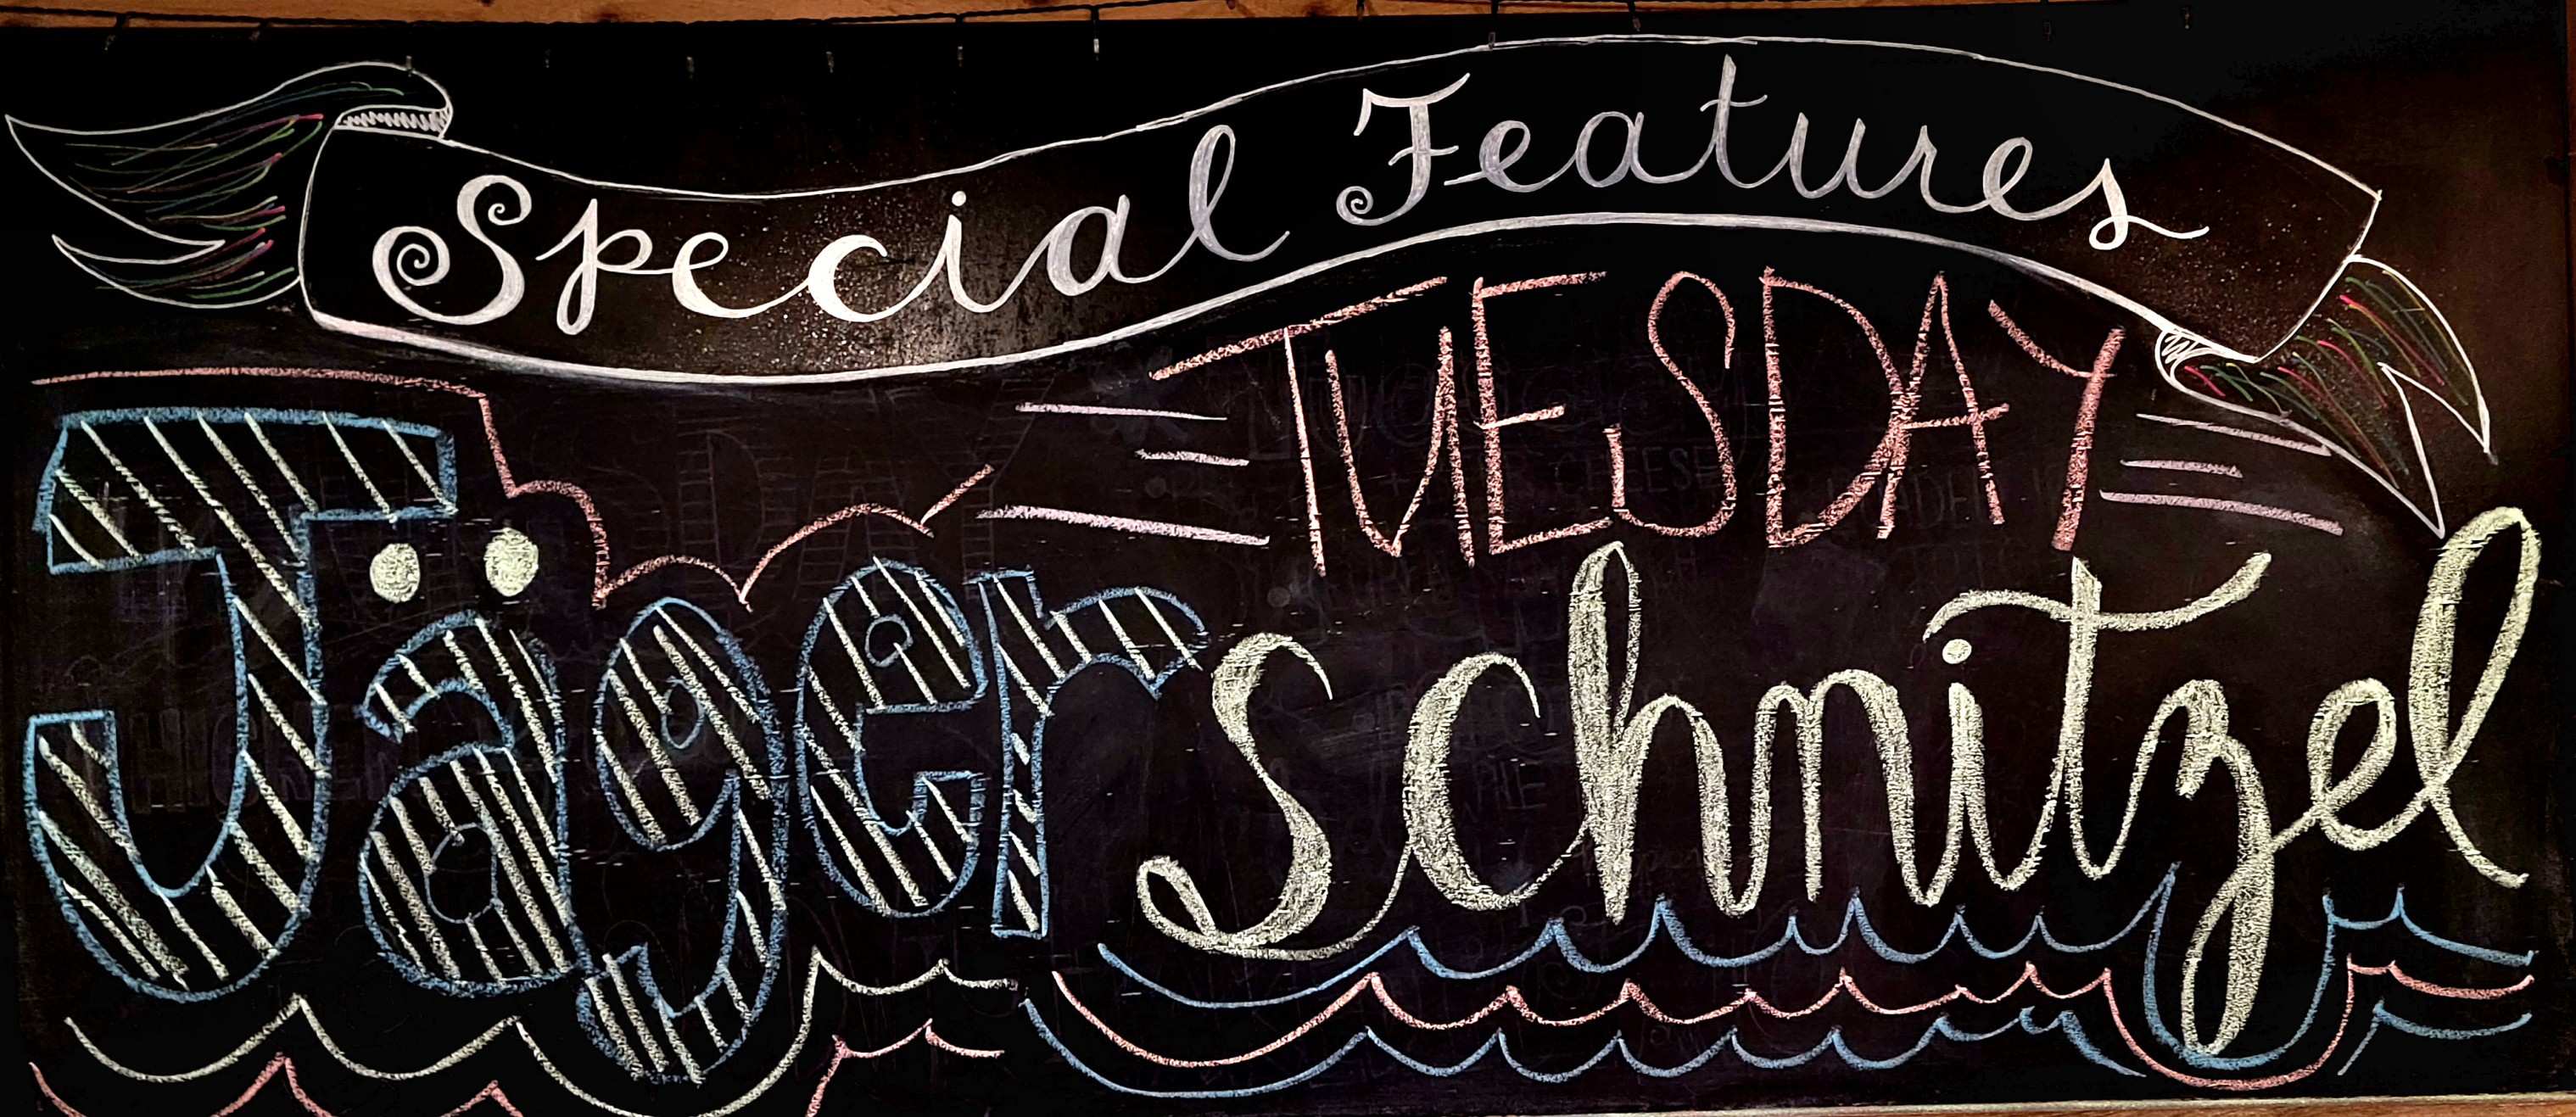 Special Features
TUESDAY
Jäger schnitzel